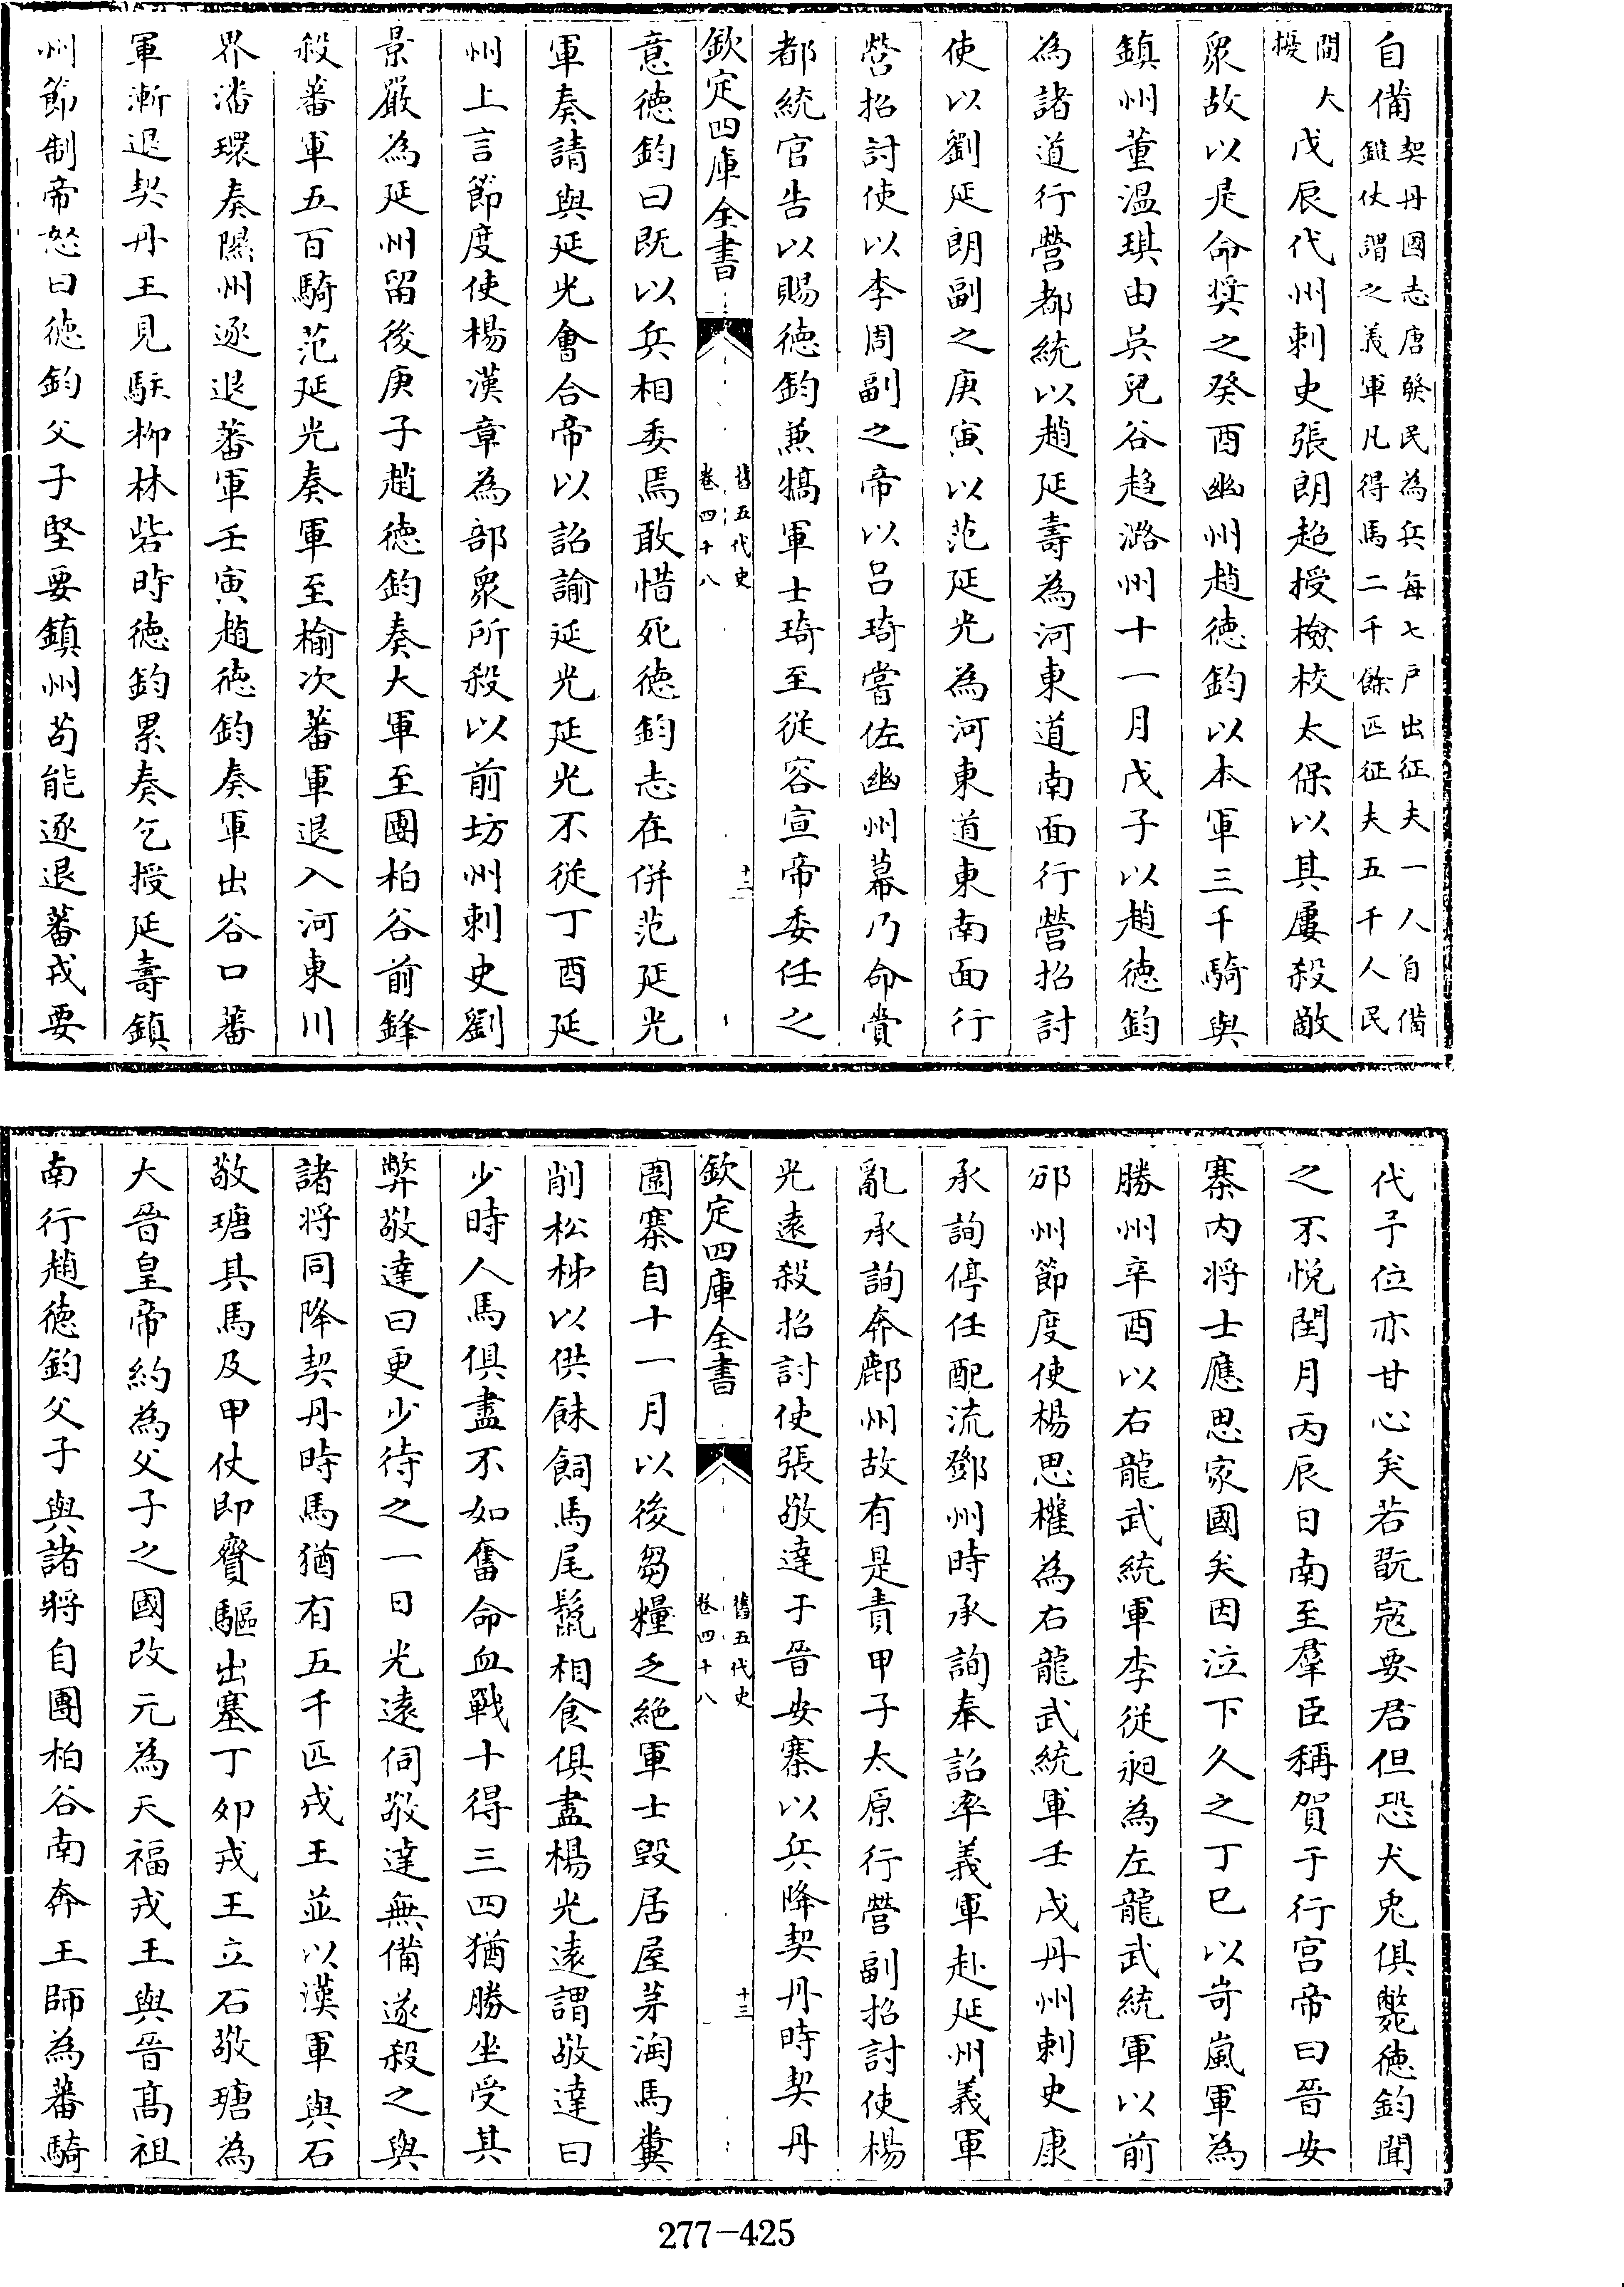 自備契丹國志唐發民為兵每七户出征夫一人自備鎧仗謂之義軍凡得馬二千餘匹征夫五千人民
間大擾戊辰代州刺史張朗超授檢校太保以其屢殺敵
衆故以是命奬之癸酉幽州趙徳鈞以本軍三千騎與
鎮州董温琪由吳兒谷趋潞州十一月戊子以趙徳鈞
為諸道行營都統以趙延壽為河東道南面行營招討
使以劉延朗副之庚寅以范延光為河東道東南面行
營招討使以李周副之帝以吕琦嘗佐幽州幕乃命賫
都統官告以賜徳鈞兼犒軍士琦至從容宣帝委任之
欽定四庫全書
舊五代史
卷四十八
十二
意徳鈞曰既以兵相委焉敢惜死徳鈞志在併范延光
軍奏請與延光會合帝以詔諭延光延光不從丁酉延
州上言節度使楊漢章為部衆所殺以前坊州刺史劉
景巖為延州留後庚子趙徳鈞奏大軍至團柏谷前鋒
殺蕃軍五百騎范延光奏軍至榆次蕃軍退入河東川
界潘環奏隰州逐退蕃軍壬寅趙徳鈞奏軍出谷口蕃
軍漸退契丹王見駐柳林砦時徳鈞累奏乞授延壽鎮
州節制帝怒曰徳鈞父子堅要鎮州苟能逐退蕃戎要
代予位亦甘心矣若翫宼要君但恐犬兎俱斃徳鈞聞
之不悦閏月丙辰日南至羣臣稱賀于行宫帝曰晉安
寨内将士應思家國矣因泣下久之丁巳以岢嵐軍為
勝州辛酉以右龍武統軍李從昶為左龍武統軍以前
邠州節度使楊思權為右龍武統軍壬戌丹州刺史康
承詢停任配流鄧州時承詢奉詔率義軍赴延州義軍
亂承詢奔鄜州故有是責甲子太原行營副招討使楊
光逺殺招討使張敬達于晉安寨以兵降契丹時契丹
欽定四庫全書
舊五代史
卷四十八
十三
圍寨自十一月以後芻糧乏絶軍士毁居屋茅淘馬糞
削松柹以供餗飼馬尾鬛相食俱盡楊光逺謂敬達曰
少時人馬俱盡不如奮命血戰十得三四猶勝坐受其
弊敬達曰更少待之一日光逺伺敬達無備遂殺之與
諸将同降契丹時馬猶有五千匹戎王並以漢軍與石
敬瑭其馬及甲仗即賫驅出塞丁卯戎王立石敬瑭為
大晉皇帝約為父子之國改元為天福戎王與晉髙祖
南行趙徳鈞父子與諸将自團柏谷南奔王師為蕃騎
277-425